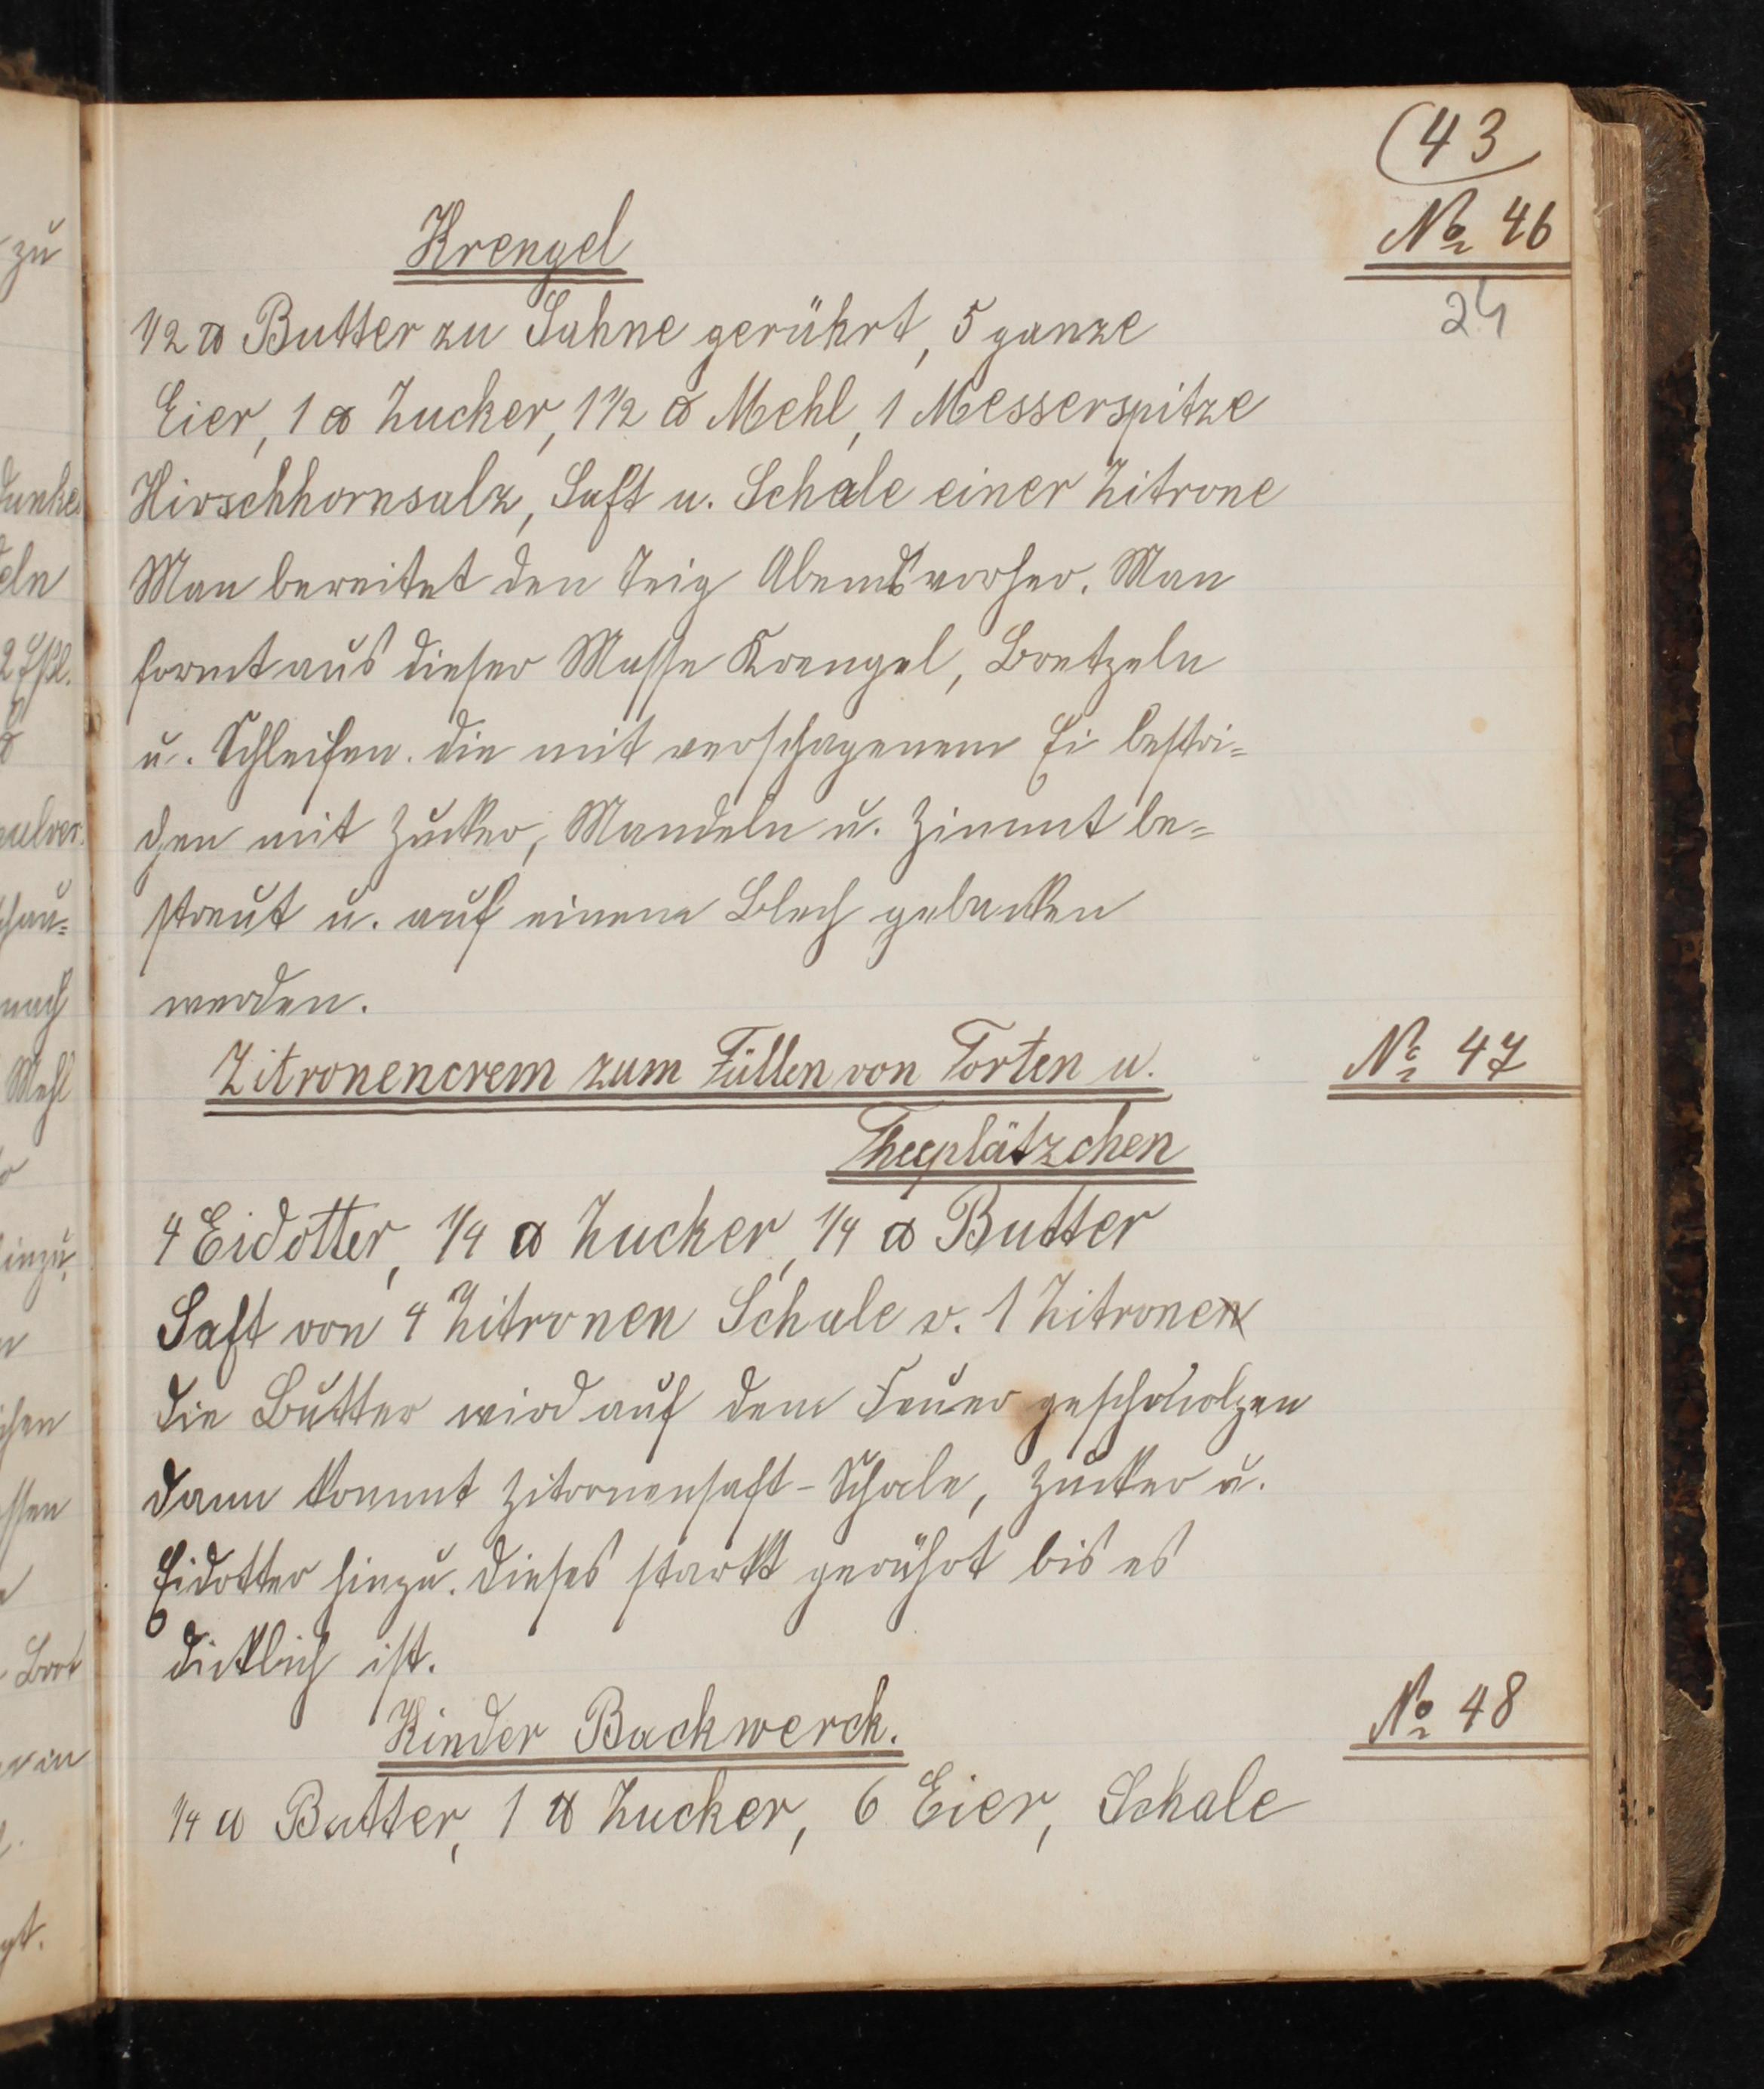 43
Krengel
No 46
24
1/2 ℔ Butter zu Sahne gerührt, 5 ganze
Eier, 1 ℔ Zucker, 1 1/2 ℔ Mehl, 1 Messerspitze
Hirschhornsalz, Saft u. Schale einer Zitrone
Man bereitet den Teig Abends vorher. Man
formt aus dieser Masse Krengel, Bretzeln
u. Schleifen. die mit verschagenem Ei bestri=
chen mit Zucker, Mandeln u. Zimmt be=
streut u. auf einem Blech gebacken
werden.
Zitronencrem zum Füllen von Torten u.
No 47
Theeplätzchen
4 Eidotter, 1/4 ℔ Zucker, 1/4 ℔ Butter
Saft von 4 Zitronen Schale v. 1 Zitronen
die Butter wird auf dem Feuer geschmolzen
dann kommt Zitronensaft-Schale, Zucker u.
Eidotter hinzu. dieses starkt gerührt bis es
dicklich ist.
Kinder Backwerck.
No 48
1/4 ℔ Butter, 1 ℔ Zucker, 6 Eier, Schale